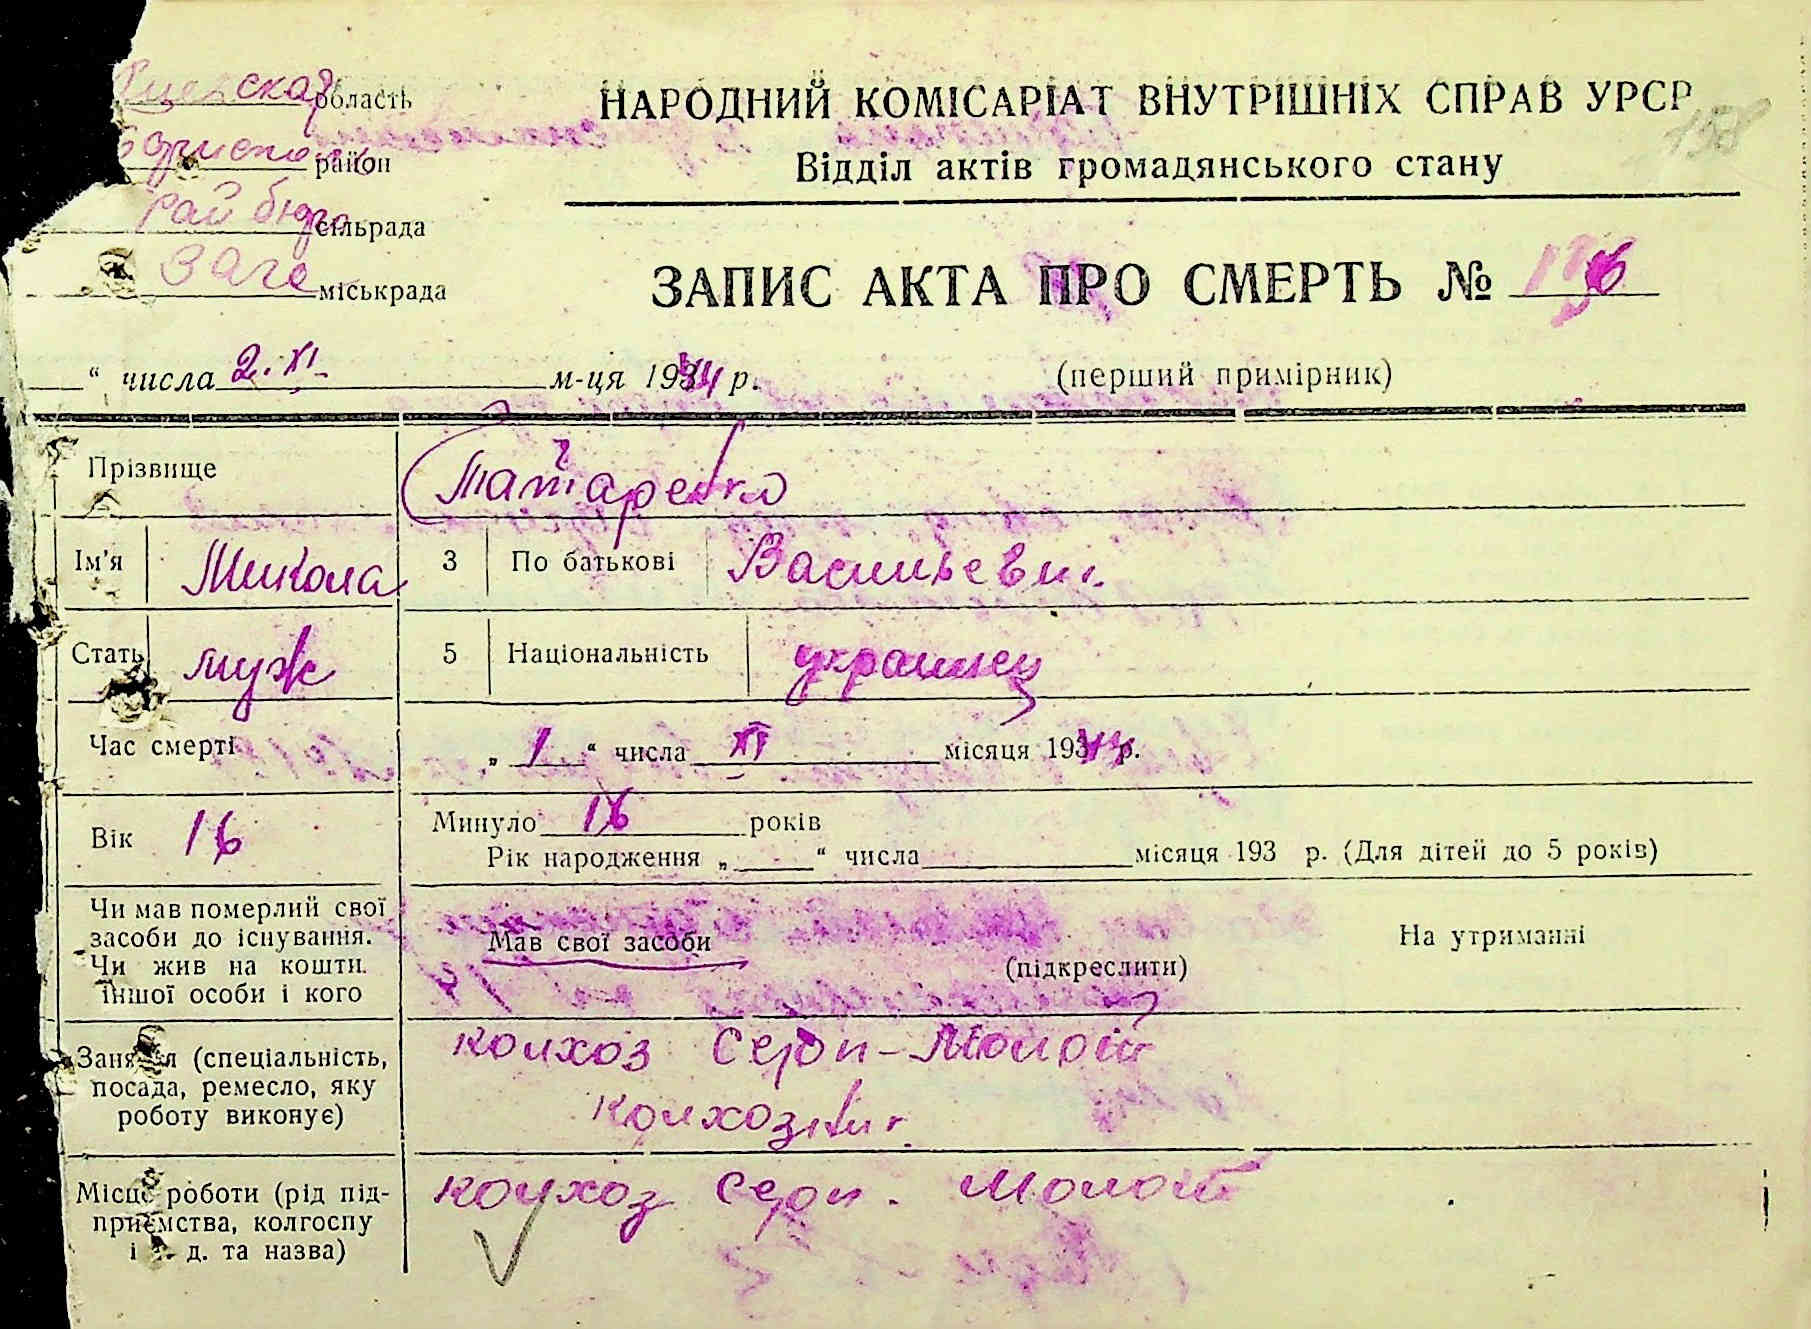 ская область
район
Рай бюро сільрада
Загс міськрада
НАРОДНИЙ КОМІСАРІАТ ВНУТРІШНІХ СПРАВ УРСР
158
Відділ актів громадянського стану
ЗАПИС АКТА ПРО СМЕРТЬ №
“ числа 2.XI м-ця 1944 р.
(перший примірник)
Прізвище Татаренко
Ім'я Микола 3 По батькові Васильевич
Стать муж 5 Національність украинец
Час смерті „ 1 “ числа XI місяця 1944 р.
Вік 16 Минуло 16 років
Рік народження „ “ числа місяця 193 р. (Для дітей до 5 років)
Чи мав померлий свої засоби до існування. Чи жив на кошти іншої особи і кого
Мав свої засоби (підкреслити) На утриманні
Заняття (спеціальність, посада, ремесло, яку роботу виконує)
колхоз Серп-Молот
колхозник
Місце роботи (рід підприємства, колгоспу і т. д. та назва)
колхоз Серп. Молот